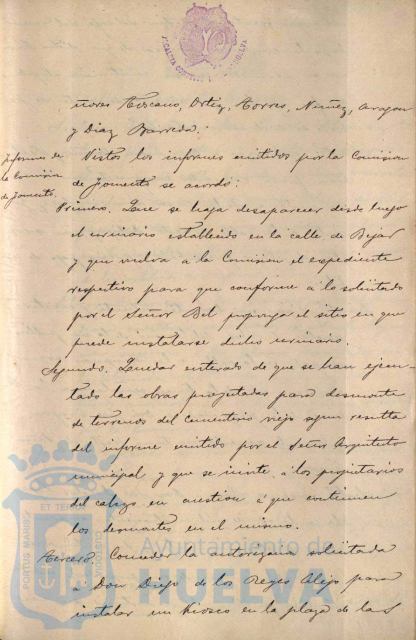 ALCALDIA CONSTITUCIONAL HUELVA
ñores Toscano, Ortiz, Torres, Nuñez, Aragon
y Diaz Barreda.
Informes de
la Comision
de Fomento.
Vistos los informes emitidos por la Comision
de Fomento se acordó:
Primero. Que se haga desaparecer desde luego
el urinario establecido en la calle de Bejar
y que vuelva á la Comision el expediente
respectivo para que conforme á lo solicitado
por el Señor Bel proponga el sitio en que
puede instalarse dicho urinario.
Segundo. Quedar enterado de que se han ejecu-
tado las obras proyectadas para desmonte
de terrenos del cementerio viejo segun resulta
del informe emitido por el Señor Arquitecto
municipal y que se invite á los propietarios
del cabezo en cuestion á que continuen
los desmontes en el mismo.
Tercero. Conceder la autorizacion solicitada
á Don Diego de los Reyes Alejo para
instalar un Kiosco en la plaza de las
PORTUS MARIS
ET TERRAE
CUSTODIA
Ayuntamiento de
HUELVA